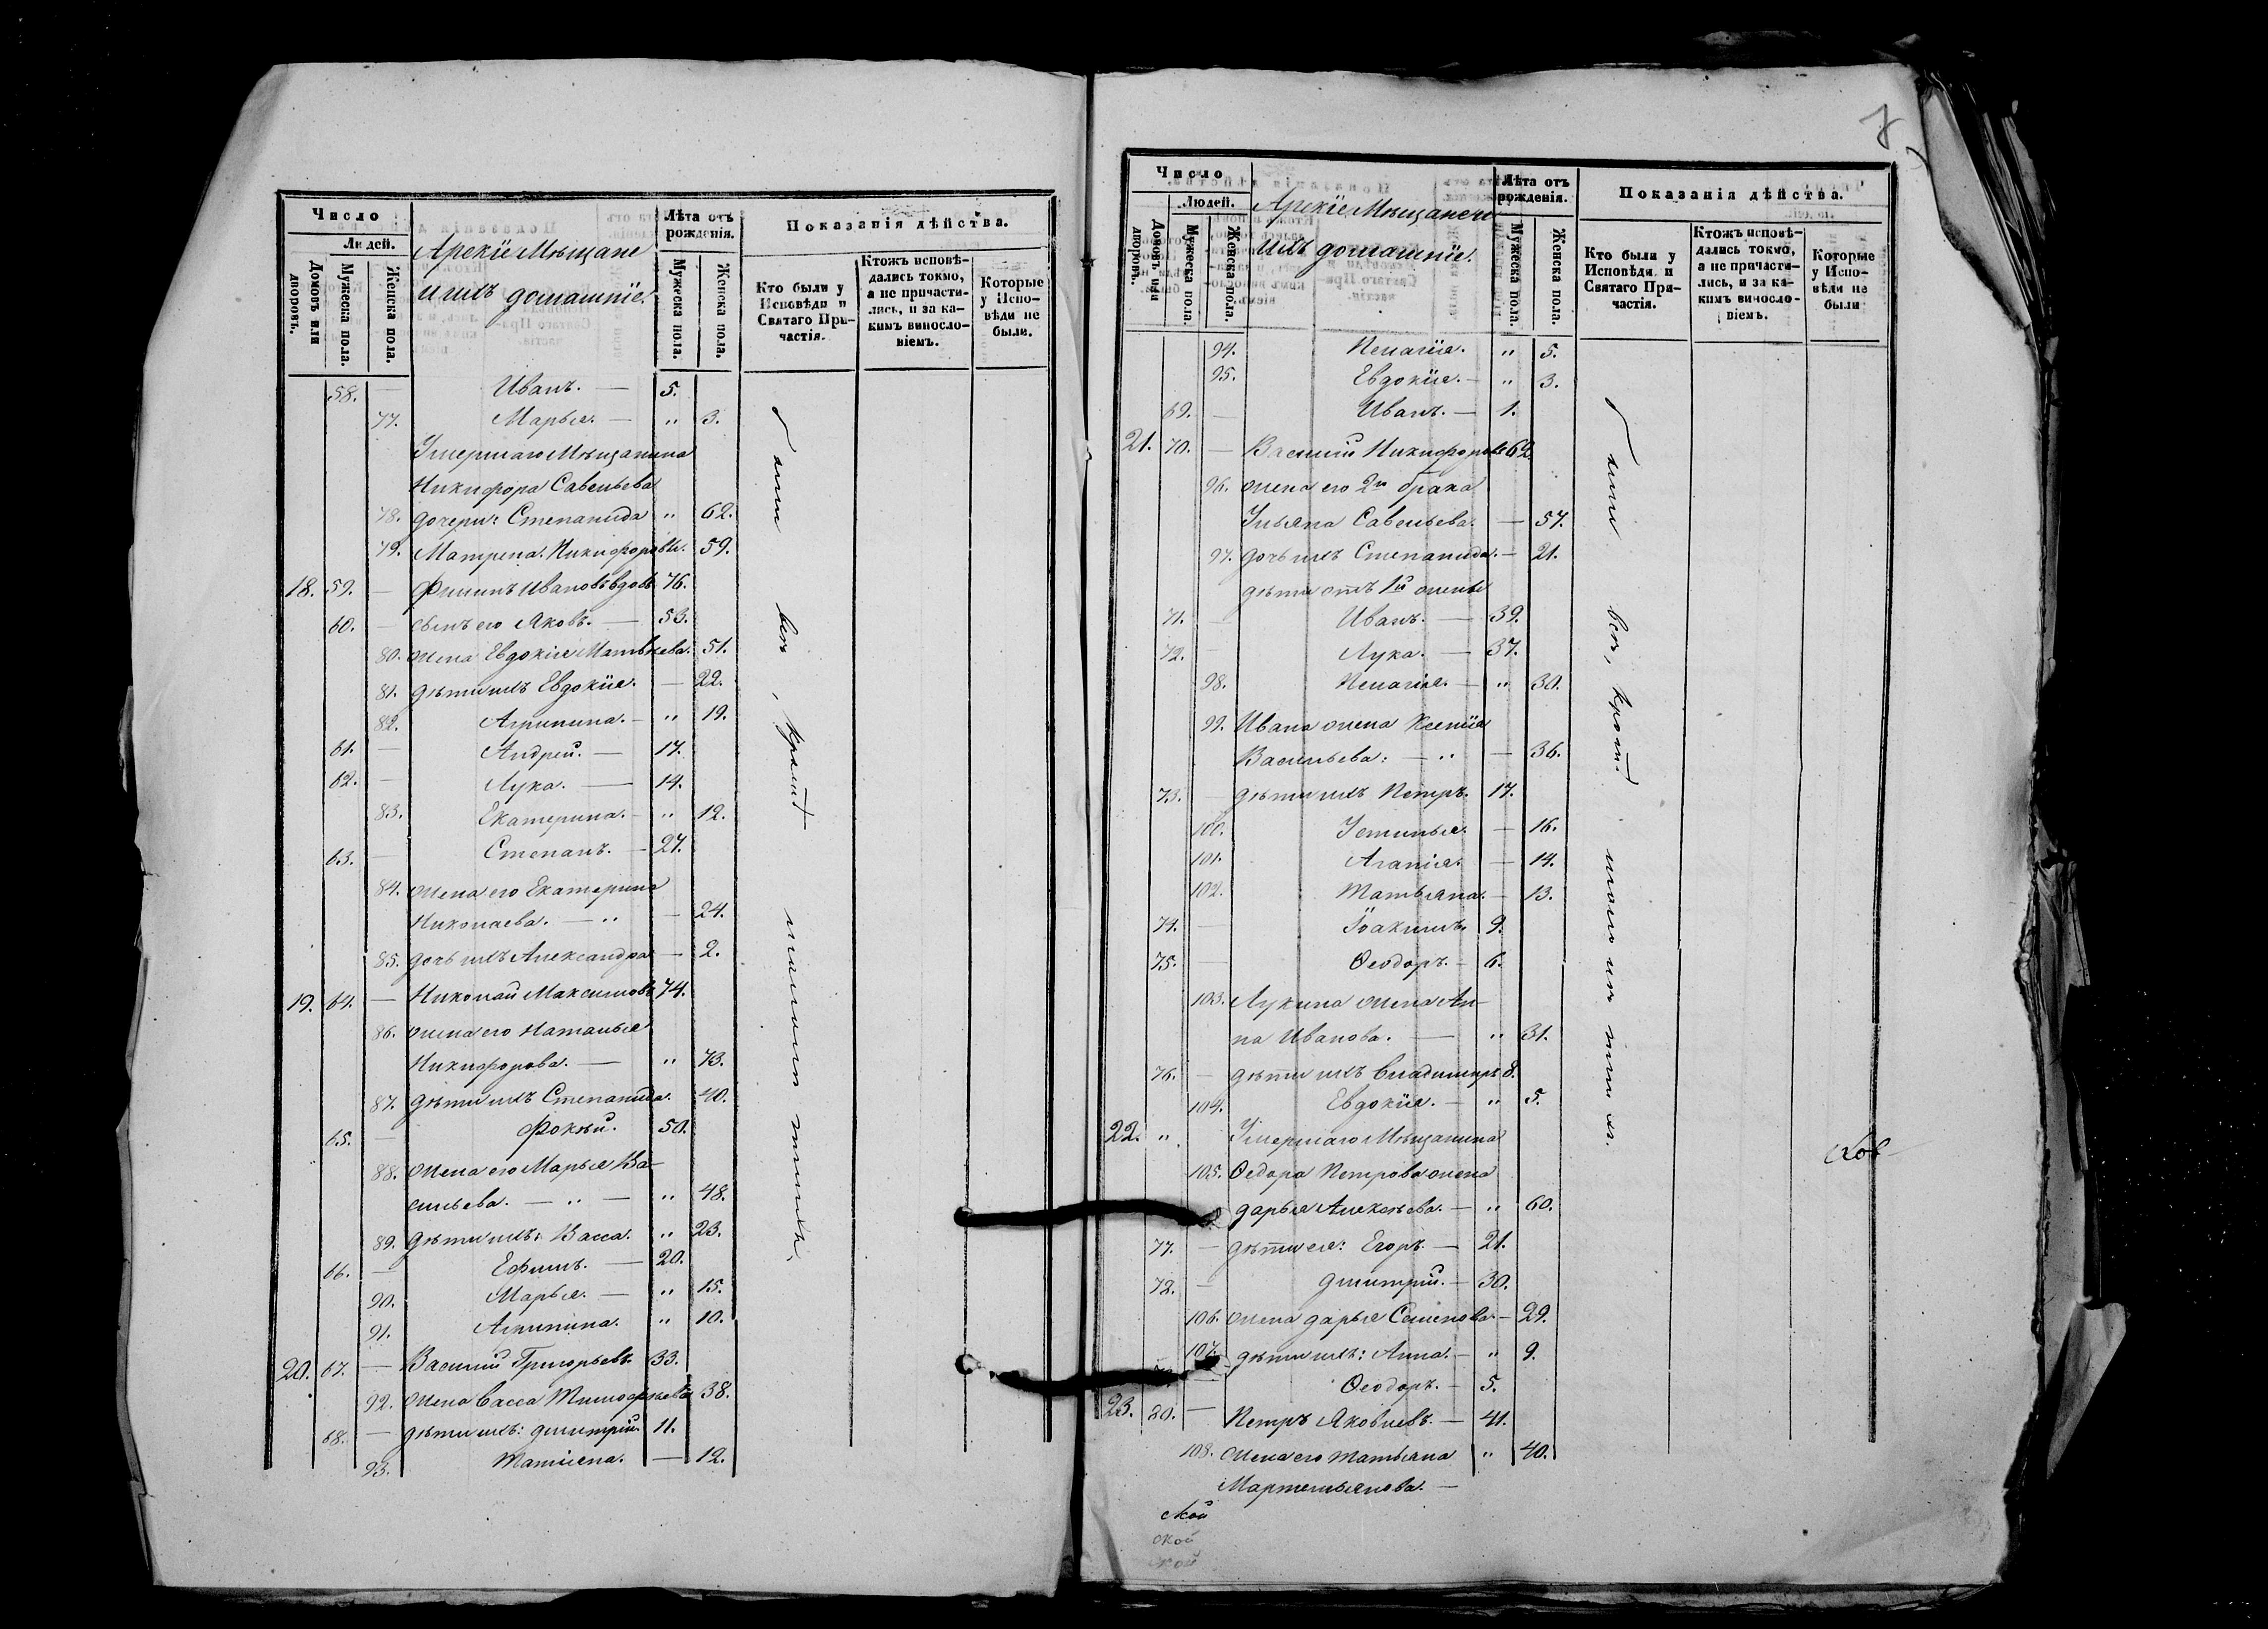 Число
Людей.
Домовъ или дворовъ.
Мужеска пола.
Женска пола.
Арскіе Мѣщане
и ихъ домашніе.
Лѣта отъ рожденія.
Мужеска пола.
Женска пола.
Показанія дѣйства.
Кто были у Исповѣди и Святаго Причастія.
Ктожъ исповѣдались токмо, а не причастились, и за какимъ винословіемъ.
Которые у Исповѣди не были.
58. — Иванъ. — 5.
77. Марья. — „ 3.
Умершаго Мѣщанина
Никифора Савельева
78. дочери: Степанида „ 62.
79. Матрена Никифоровы. 59.
18. 59. — Филипъ Ивановъ вдовъ 76.
60. — сынъ его Яковъ. — 53.
80. жена Евдокія Матвѣева. 51.
81. дѣти ихъ Евдокія. — 22.
82. Агрипина. — „ 19.
61. — Андрей. — 17.
62. — Лука. — 14.
83. Екатерина. — „ 12.
63. — Степанъ. — 27.
84. жена его Екатерина
Николаева. — „ — 24.
85. дочь ихъ Александра — 2.
19. 64. — Николай Максимовъ 74.
86. жена его Наталья
Никифорова. — „ 73.
87. дѣти ихъ Степанида. 40.
65. — Фокѣй. 50.
88. жена его Марья Ва-
сильева. — „ — „ 48.
89. дѣти ихъ: Васса. „ 23.
66. — Ефимъ. — 20.
90. Марья. — „ 15.
91. Агрипина. „ 10.
20. 67. — Василий Григорьевъ. 33.
92. жена Васса Тимофѣева 38.
68. — дѣти ихъ: Дмитрий. 11.
93. Татіяна. — 12.
7
Число
Людей.
Домовъ или дворовъ.
Мужеска пола.
Женска пола.
Арскіе Мѣщане и
ихъ домашніе.
Лѣта отъ рожденія.
Мужеска пола.
Женска пола.
Показанія дѣйства.
Кто были у Исповѣди и Святаго Причастія.
Ктожъ исповѣдались токмо, а не причастились, и за какимъ винословіемъ.
Которые у Исповѣди не были
94. Пелагія. „ 5.
95. Евдокія. — „ 3.
69. — Иванъ. — 1.
21. 70. — Василий Никифоровъ 62.
96. жена его 2й брака
Ульяна Савельева. — 57.
97. дочь ихъ Степанида. — 21.
дѣти отъ 1й жены
71. — Иванъ. — 39.
72. Лука. — 37.
98. Пелагія. — „ 30.
99. Ивана жена Ксенія
Васильева: — „ — 36.
73. — дѣти ихъ Петръ. 17.
100. Устинья. — 16.
101. Агапія. — 14.
102. Татьяна. — 13.
74. — Іоакимъ. 9.
75. — Ѳеодоръ. — 6.
103. Лукина жена Ан-
на Иванова. — „ 31.
76. — дѣти ихъ Владимиръ 8.
104. Евдокія. — „ 5.
22. „ Умершаго Мѣщанина
105. Ѳедора Петрова жена
Дарья Алексѣева. — „ 60.
77. — дѣти ея: Егоръ. — 21.
72. — Дмитрий. — 30.
106. жена Дарья Семенова — 29.
107. дѣти ихъ: Анна. — „ 9.
— Ѳеодоръ. — 5.
23. 80. — Петръ Яковлевъ. — 41.
108. жена его Татьяна „ 40.
Мартемьянова. —
ской
ской
ской